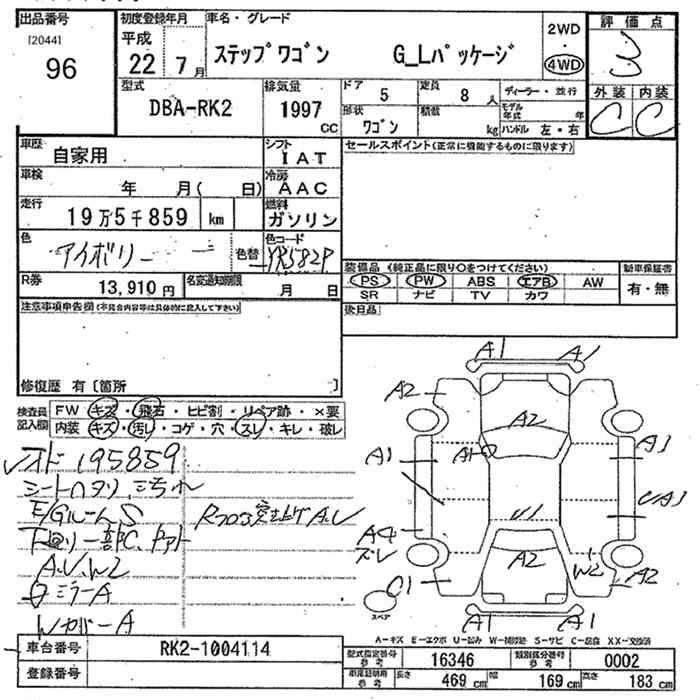 出品番号
[2044]
96
初度登録年月
平成
22 7月
車名・グレード
ステップワゴン G_Lパッケージ
2WD
・
4WD
評価点
3
外装 内装
C C
型式
DBA-RK2
排気量
1997
CC
ドア 5
定員 8 人
形状 ワゴン
積載 kg
ディーラー・並行
モデル年式 年
ハンドル 左・右
車歴
自家用
シフト
IAT
車検
年 月( 日)
冷房
AAC
走行
19万5千859 km
燃料
ガソリン
色
アイボリー
色替
色コード
YR582P
R券
13,910円
名変通知期限
月 日
セールスポイント(正常に機能するものに限ります)
装備品 (純正品に限り○をつけてください)
PS PW ABS エアB AW
SR ナビ TV カワ
新車保証書
有・無
後日品
注意事項申告欄(不具合内容等は具体的に記入して下さい)
修復歴 有 [箇所 ]
検査員
記入欄
FW キズ・飛石・ヒビ割・リペア跡・×要
内装 キズ・汚レ・コゲ・穴・スレ・キレ・破レ
195859
シートヘタリ
E/Gルーム S
A.U.W2
ミラーA
WカバーA
A1 A1
A2
A2
A1
A1
UA1
U1
A4
スレ
A2
W2
A2
C1
スペア
A1 A1
A-キズ E-エクボ U-凹み W-補修跡 S-サビ C-腐食 XX-交換済
車台番号
RK2-1004114
登録番号
型式指定番号
参考
16346
類別区分番号
参考
0002
車庫証明用
参考
長さ 469 cm 幅 169 cm 高さ 183 cm